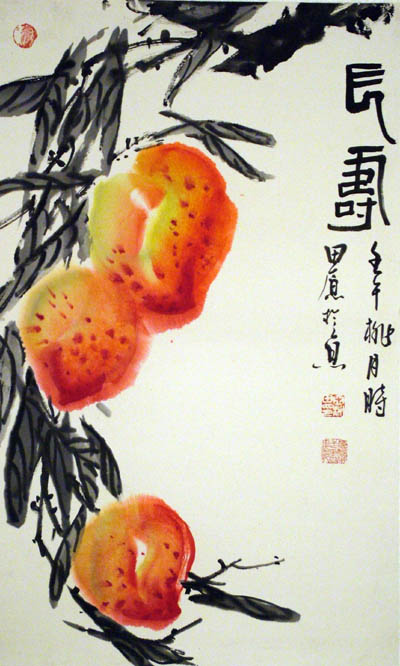 長壽
壬午桃月時
田 於